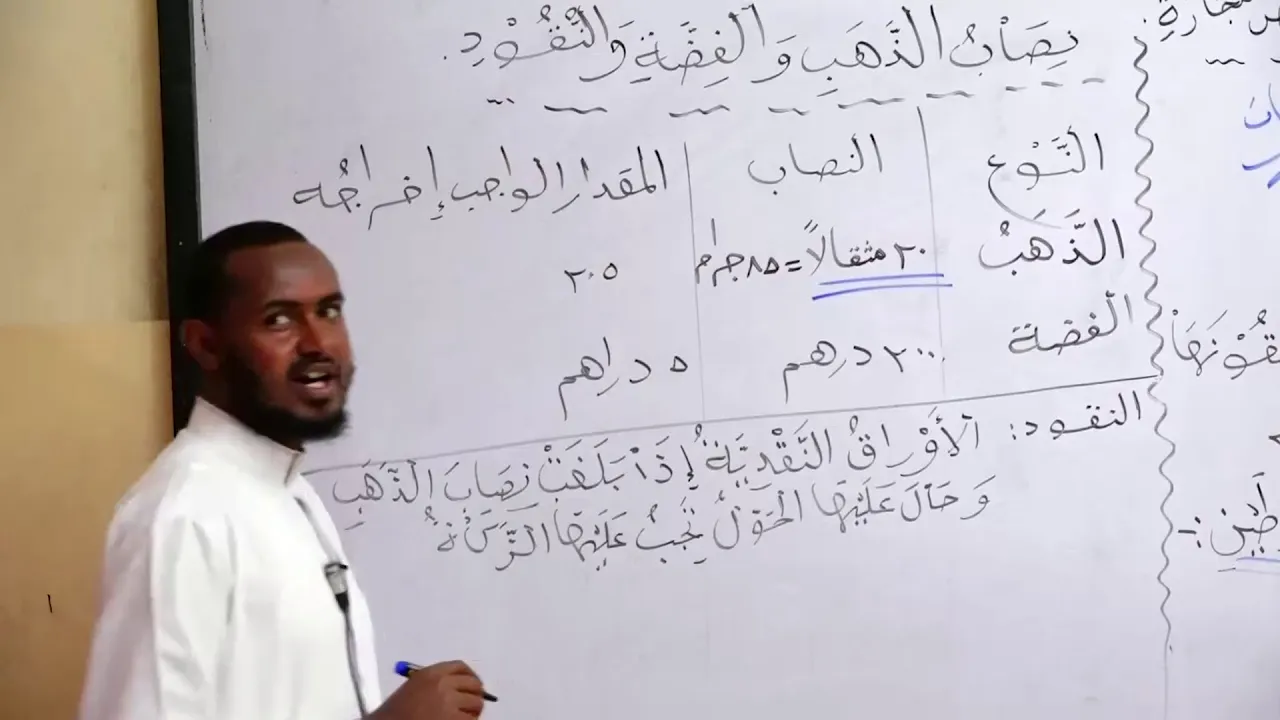 نِصَابُ الذَّهَبِ وَالْفِضَّةِ وَالنُّقُوْدِ.
النَّوْع النصاب المقدار الواجب إخراجُه
الذَّهَبُ ٢٠ مثقالاً = ٨٥ جرام ٢.٥
الفضة ٢٠٠ درهم ٥ دراهم
النقود: الْأَوْرَاقُ النَّقْدِيَّةُ إِذَا بَلَغَتْ نِصَابَ الذَّهَبِ
وَحَالَ عَلَيْهَا الْحَوْلُ تَجِبُ عَلَيْهَا الزَّكَاةُ